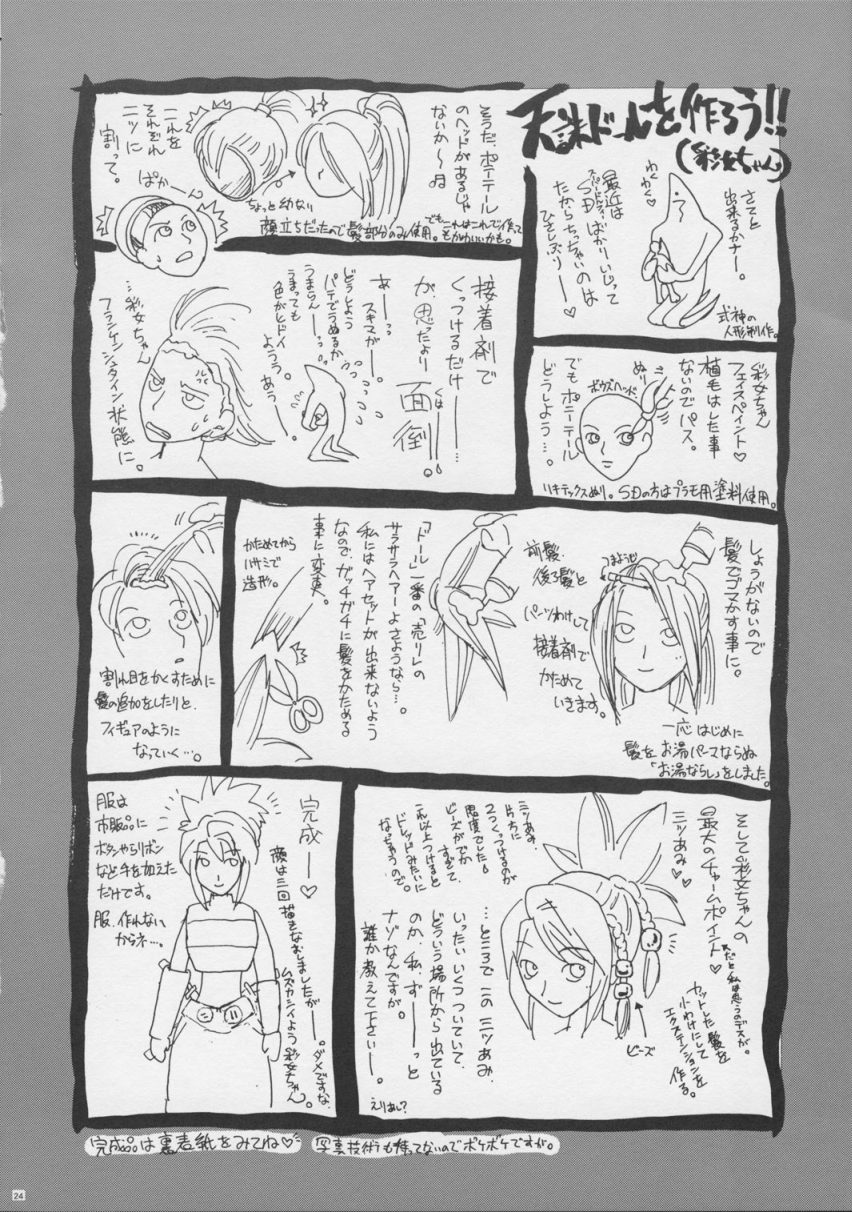 天誅ドールを作ろう!!
(彩女ちゃん)
さてと
出来るかナー。
わくわく♡
最近は
スーパードルフィー
SDばかりいじって
たからちっちゃいのは
ひさしぶりー♡
式神の
人形制作。
彩女ちゃん
フェイスペイント♡
植毛はした事
ないのでパス。
でもポニーテール
どうしよう…。
ボウズヘッド
ぬり
リキテックスぬり。SDの方はプラモ用塗料使用。
そうだ、ポニーテール
のヘッドがあるじゃ
ないか〜
これを
それぞれ
二ツに
割って。
ぱかーん
ちょっと幼ない
顔立ちだったので髪部分のみ使用。
でもこれはこれで作って
もかわいいかも。
接着剤で
くっつけるだけー…
が、思ったより
面倒。
あーっ
スキマがー。
どうしよう
パテでうめるか
うまらんーっ
うまっても
色がヒドイ
ようう。
あうー。
…彩女ちゃん
フランケンシュタイン状態に。
しょうがないので
髪でゴマかす事に。
つまようじ
一応はじめに
髪をお湯パーマならぬ
「お湯ならし」をしました。
前髪、
後ろ髪と
パーツわけして
接着剤で
かためて
いきます。
「ドール」一番の「売り」の
サラサラヘアーよさようなら…。
私にはヘアセットが出来ないよう
なので、ガッチガチに髪をかためる
事に変更。
かためてから
ハサミで
造形。
割れ目をかくすために
髪の追加をしたりと、
フィギュアのように
なっていく…。
そして彩女ちゃんの
最大のチャームポイント♡
三ツあみ♡
だと私は思うのデスが。
カットした髪を
小わけにして
エクステンションを
作る。
ビーズ
三ツあみ、
片方に
2つくっつけるのが
限度でした
ビーズがでか
すぎて
これ以上つけると
ドレッドみたいに
なっちゃうので。
…ところでこの三ツあみ、
いったいいくつついていて、
どういう場所から出ている
のか、私、ずーーっと
ナゾなんですが。
誰か教えて下さいー。
えりあし?
完成ー♡
顔は三回描きなおしましたがー。ダメですな。
ムズカシイよう彩女ちゃん。
服は
市販品に
ボタンやらリボン
など手を加えた
だけです。
服、作れない
からネ…。
完成品は裏表紙をみてね♡
写真技術も持ってないのでボケボケですが。
24